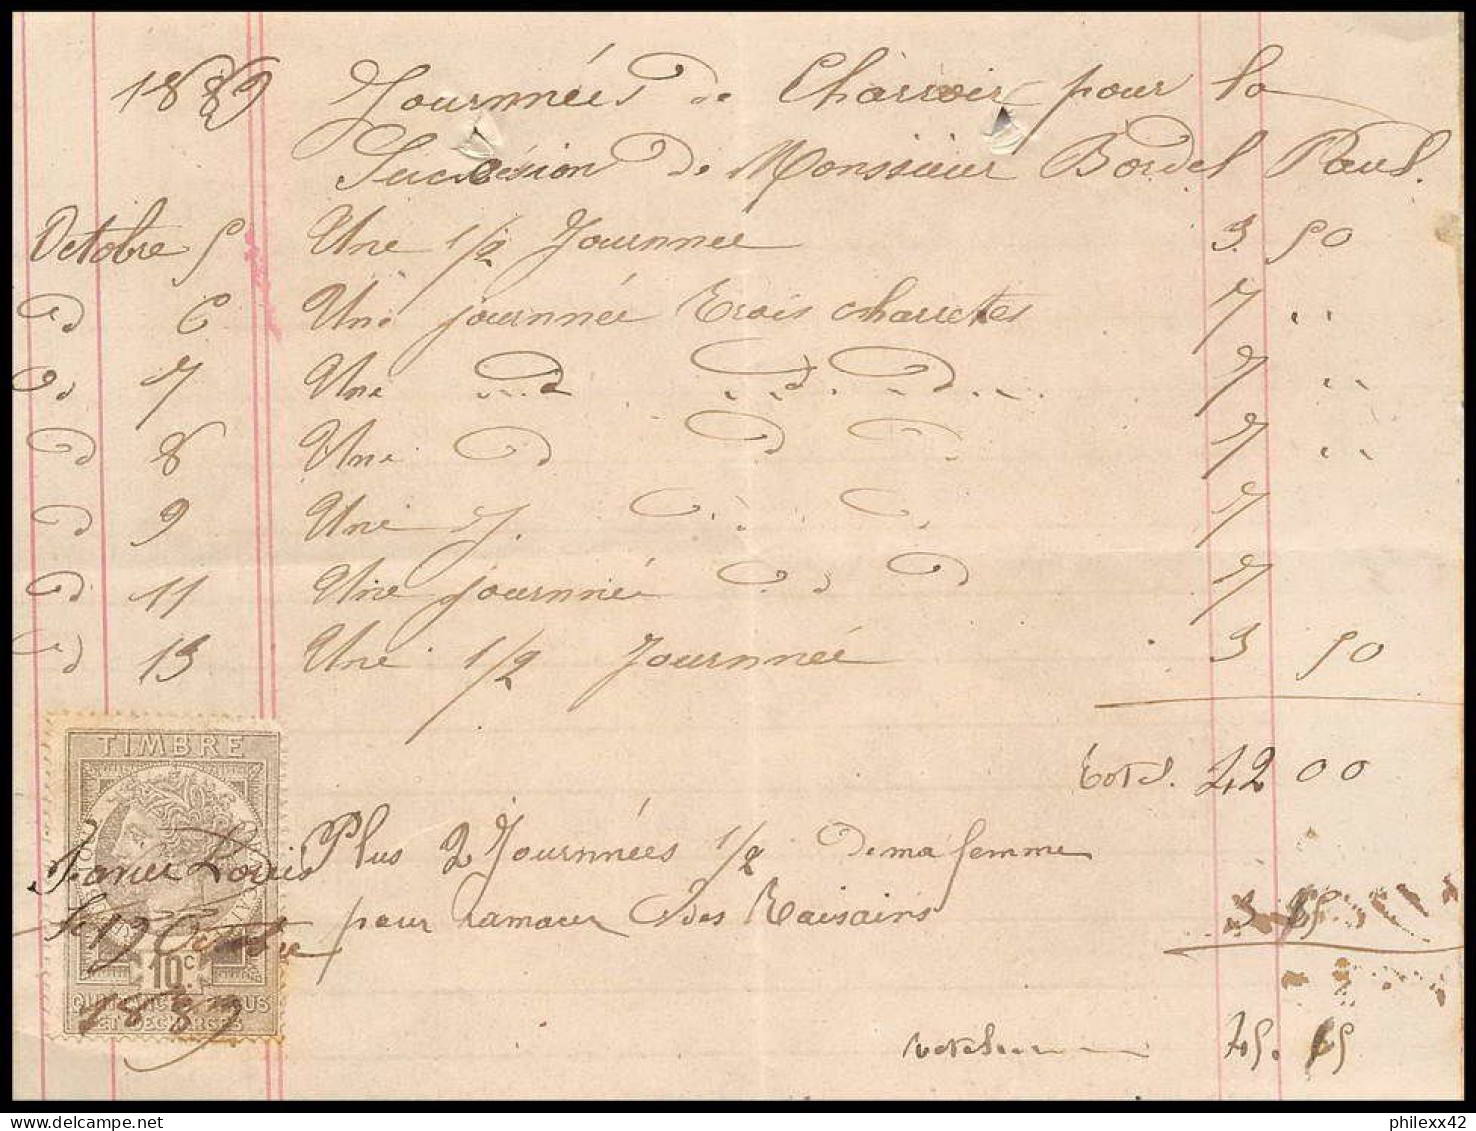 1889 Journnées de Charroir pour la
Succésion de Monsieur Bordel Paul.
Octobre 5 Une 1/2 Journnee 3. 50
d 6 Une journnée trois charretes 7 "
d 7 Une d d d 7 "
d 8 Une d d d 7 "
d 9 Une J. d d 7
d 11 Une journnée d d 7
d 13 Une 1/2 Journnée 3 50
total. 42 00
TIMBRE
Plus 2 Journnées 1/2 de ma femme
Louis
pour ramacer des Raisains 3
Le 19 Octobre
10c
QUITTANCES REÇUS
ET DÉCHARGES
1889
45.
philexx42